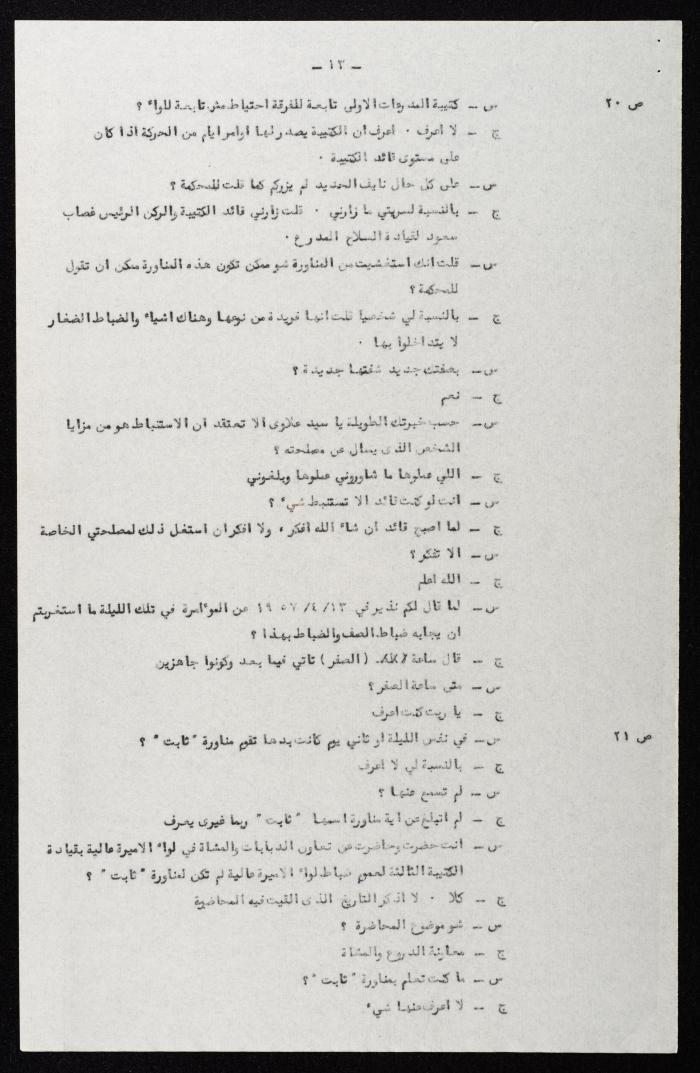 - ١٣ -
ص ٢٠
س - كتيبة المدرعات الاولى تابعة للفرقة احتياط مش تابعة للواء ؟
ج - لا اعرف . اعرف ان الكتيبة يصدر لها اوامر ايام من الحركة اذا كان
على مستوى قائد الكتيبة .
س - على كل حال نايف الحديد لم يزركم كما قلت للمحكمة ؟
ج - بالنسبة لسريتي ما زارني . قلت زارني قائد الكتيبة والركن الرئيس غصاب
سعود لقيادة السلاح المدرع .
س - قلت انك استغشيت من المناورة شو ممكن تكون هذه المناورة ممكن ان تقول
للمحكمة ؟
ج - بالنسبة لي شخصيا قلت انها فريدة من نوعها وهناك اشياء والضباط الصغار
لا يتداخلوا بها .
س - بصفتك جديد شفتها جديدة ؟
ج - نعم
س - حسب خبرتك الطويلة يا سيد علاوى الا تعتقد ان الاستنباط هو من مزايا
الشخص الذى يسال عن مصلحته ؟
ج - اللي عملوها ما شاوروني عملوها وبلغوني
س - انت لو كنت قائد الا تستنبط شيء ؟
ج - لما اصبح قائد ان شاء الله افكر ، ولا افكر ان استغل ذلك لمصلحتي الخاصة
س - الا تفكر ؟
ج - الله اعلم
س - لما قال لكم نذير في ١٣ /٤/ ١٩٥٧ عن المؤامرة في تلك الليلة ما استغربتم
ان يجابه ضباط الصف والضباط بهذا ؟
ج - قال ساعة (الصفر) تاتي فيما بعد وكونوا جاهزين
س - متى ساعة الصفر ؟
ج - يا ريت كنت اعرف
ص ٢١
س - في نفس الليلة او ثاني يوم كانت بدها تقوم مناورة " ثابت " ؟
ج - بالنسبة لي لا اعرف
س - لم تسمع عنها ؟
ج - لم اتبلغ عن اية مناورة اسمها " ثابت " ربما غيرى يعرف
س - انت حضرت وحاضرت عن تعاون الدبابات والمشاة في لواء الاميرة عالية بقيادة
الكتيبة الثالثة لعموم ضباط لواء الاميرة عالية لم تكن لمناورة " ثابت " ؟
ج - كلا . لا اذكر التاريخ الذى القيت فيه المحاضرة
س - شو موضوع المحاضرة ؟
ج - معاونة الدروع والمشاة
س - ما كنت تعلم بمناورة " ثابت " ؟
ج - لا اعرف عنها شيء